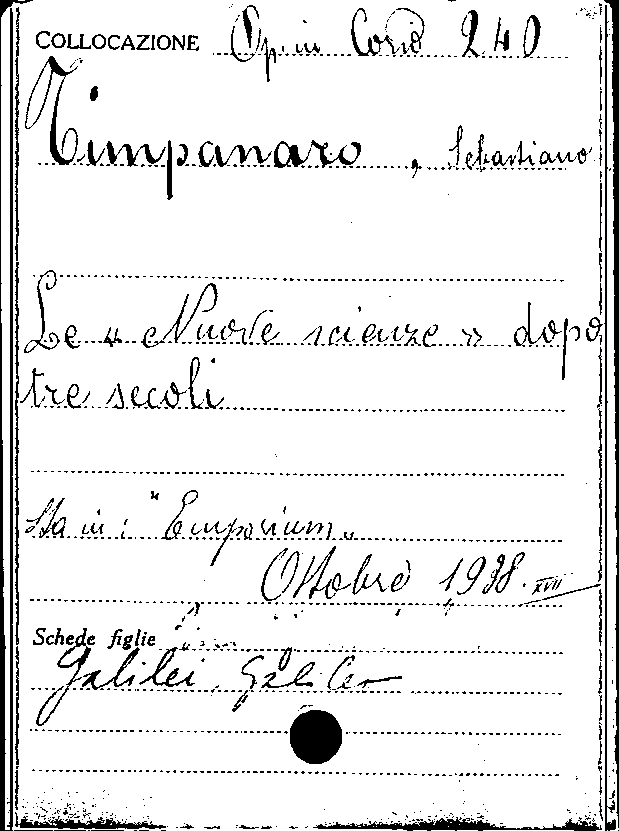 COLLOCAZIONE Op. in Corso 240
Timpanaro, Sebastiano
Le « Nuove scienze » dopo
tre secoli
Sta in: "Emporium„
Ottobre 1938. XVII
Schede figlie
Galilei